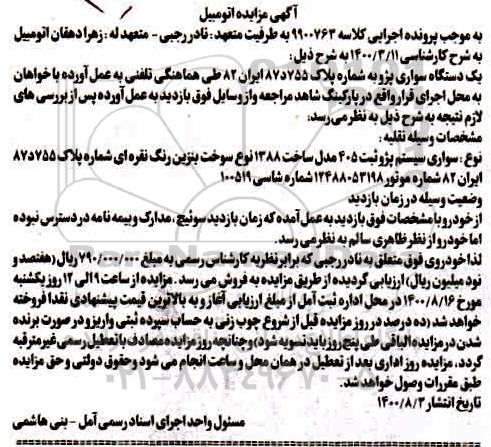 آگهی مزایده اتومبیل
به موجب پرونده اجرایی کلاسه ۹۹۰۰۷۶۳ به طرفیت متعهد: نادر رجبی - متعهد له: زهرا دهقان اتومبیل
به شرح کارشناسی ۱۴۰۰/۳/۱۱ به شرح ذیل:
یک دستگاه سواری پژو به شماره پلاک ۷۵۵د۸۷ ایران ۸۲ طی هماهنگی تلفنی به عمل آورده با خواهان
به محل اجرای قرار واقع در پارکینگ شاهد مراجعه و از وسایل فوق بازدید به عمل آورده پس از بررسی های
لازم نتیجه به شرح ذیل به نظر می‌رسد:
مشخصات وسیله نقلیه:
نوع: سواری سیستم پژو تیت ۴۰۵ مدل ساخت ۱۳۸۸ نوع سوخت بنزین رنگ نقره ای شماره پلاک ۷۵۵د۸۷
ایران ۸۲ شماره موتور ۱۲۴۸۸۰۵۳۱۹۸ شماره شاسی ۱۰۰۵۱۹
وضعیت وسیله در زمان بازدید
از خودرو با مشخصات فوق بازدید به عمل آمده که زمان بازدید سوئیچ، مدارک و بیمه نامه در دسترس نبوده
اما خودرو از نظر ظاهری سالم به نظر می رسد.
لذا خودروی فوق متعلق به نادر رجبی که برابر نظریه کارشناس رسمی به مبلغ ۷۹۰/۰۰۰/۰۰۰ ریال (هفتصد و
نود میلیون ریال) ارزیابی گردیده از طریق مزایده به فروش می رسد. مزایده از ساعت ۹ الی ۱۲ روز یکشنبه
مورخ ۱۴۰۰/۸/۱۶ در محل اداره ثبت آمل از مبلغ ارزیابی آغاز و به بالاترین قیمت پیشنهادی نقدا فروخته
خواهد شد (ده درصد در روز مزایده قبل از شروع چوب زنی به حساب سپرده ثبتی واریز و در صورت برنده
شدن در مزایده الباقی طی پنج روز باید تسویه شود) و چنانچه روز مزایده مصادف با تعطیل رسمی غیرمترقبه
گردد، مزایده روز اداری بعد از تعطیل در همان محل و ساعت انجام می شود و حقوق دولتی و حق مزایده
طبق مقررات وصول خواهد شد.
تاریخ انتشار ۱۴۰۰/۸/۳
مسئول واحد اجرای اسناد رسمی آمل - بنی هاشمی